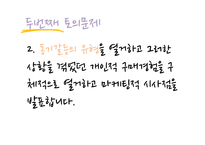 두번째 토의문제
2. 동기갈등의 유형을 열거하고 그러한
상황을 겪었던 개인적 구매경험을 구
체적으로 열거하고 마케팅적 시사점을
발표합니다.